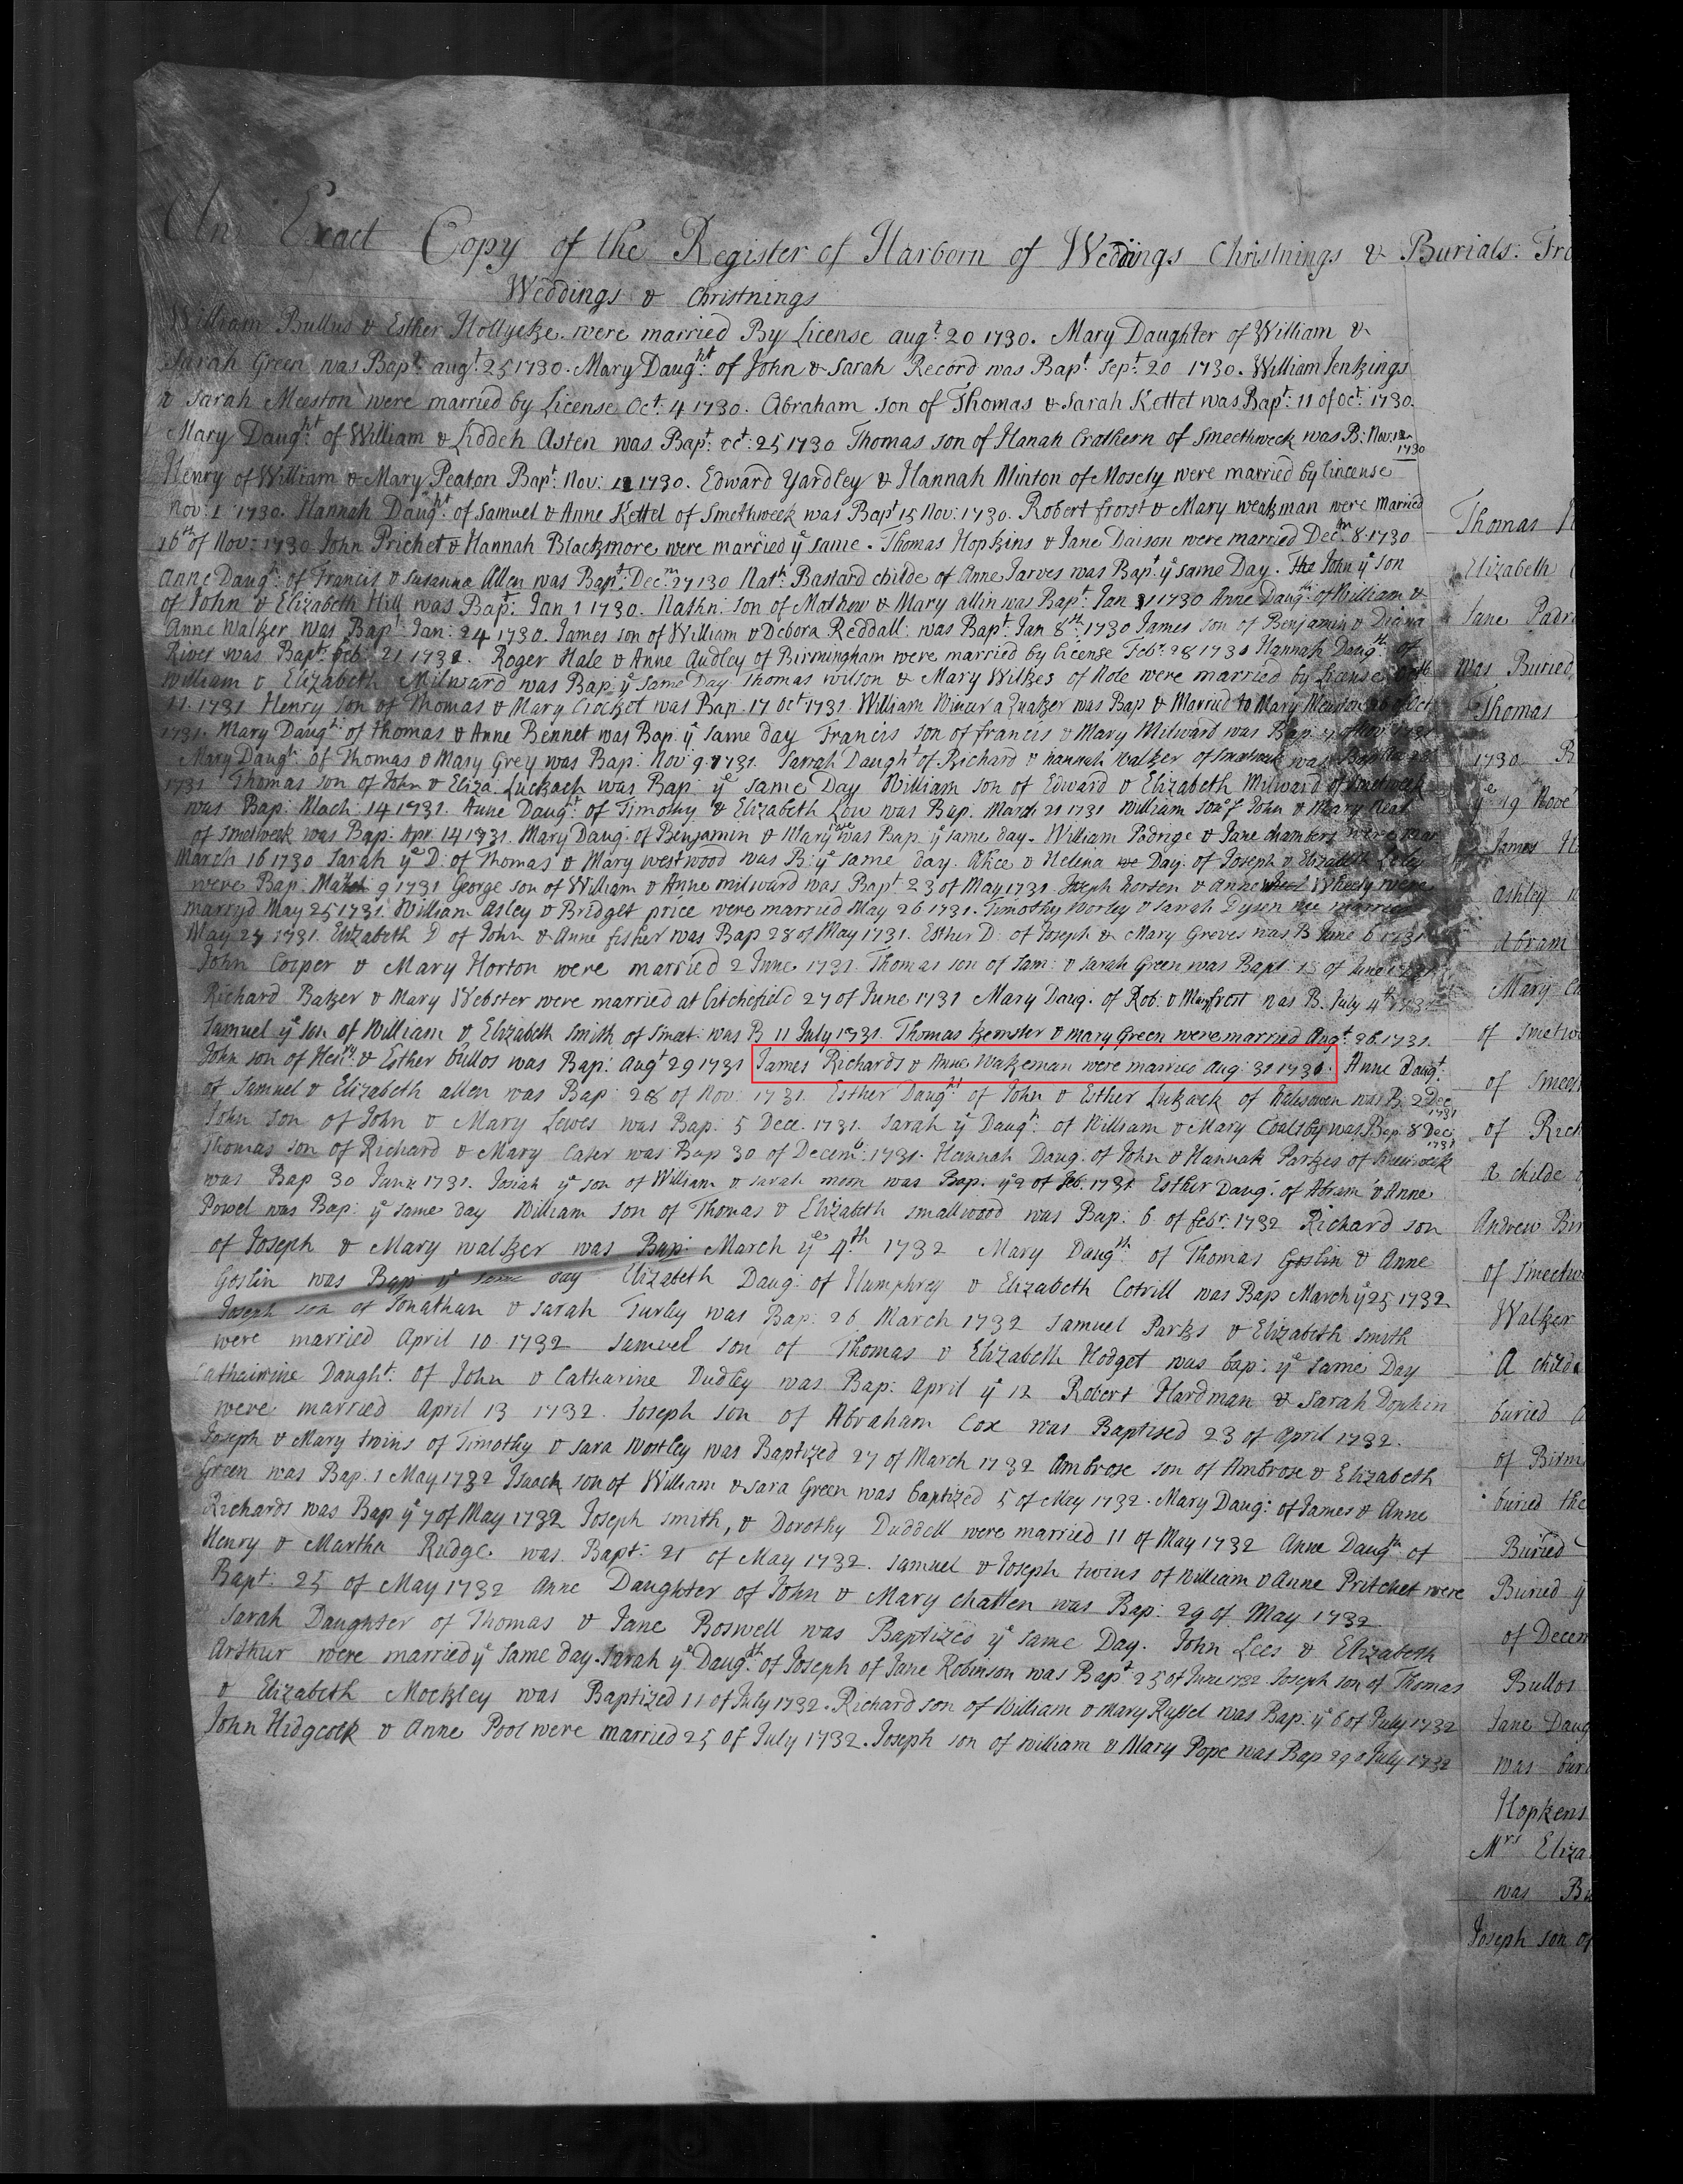 An Exact Copy of the Register of Harborn of Weddings Christnings & Burials: Fro
Weddings & Christnings
William Bullus & Esther Hollyeke were married By License augt 20 1730. Mary Daughter of William &
Sarah Green was Bapt: augt 25 1730. Mary Daught: of John & Sarah Record was Bapt Sept: 20 1730. William Jenkings
& Sarah Meeston were married by License Oct: 4 1730. Abraham son of Thomas & Sarah Kettel was Bapt: 11 of Oct: 1730.
Mary Daught: of William & Liddeh Asten was Bapt: oct: 25 1730 Thomas son of Hanah Crathern of Smeethweck was B: Nov:
1730
Henry of William & Mary Peaton Bapt: Nov: 1730. Edward Yardley & Hannah Minton of Mosely were married by lincense
Nov: 1 1730. Hannah Daught: of Samuel & Anne Kettel of Smethweek was Bapt 15 Nov: 1730. Robert frorst & Mary weakman were married
16th of Nov: 1730 John Prichet & Hannah Blackmore were married ye same. Thomas Hopkins & Jane Daison were married Decm 8 1730
Anne Daugt: of Francis & Susanna Allen was Bapt: Decm 27 130 Nath: Bastard childe of Anne Jarves was Bapt ye same Day. The John ye son
of John & Elizabeth Hill was Bapt: Jan 1 1730. Nathn: son of Mathew & Mary allin was Bapt: Jan 1730 Anne Daugh: of William &
Anne Walker was Bapt: Jan: 24 1730. James son of William & Debora Reddall: was Bapt: Jan 8th 1730 James son of Benjamin & Diana
River was Bapt: feb: 21 1731. Roger Hale & Anne Audley of Birmingham were married by license Febr. 28 1730 Hannah Daugth of
William & Elizabeth Milward was Bap ye Same Day Thomas wilson & Mary Wilkes of Note were married by license
11 1731 Henry son of Thomas & Mary Crocket was Bap. 17 oct 1731 William a Quaker was Bap & Married to Mary
1731. Mary Daugt: of thomas & Anne Bennet was Bap ye same day Francis son of francis & Mary Milward was Bap
Mary Daugt: of Thomas & Mary Grey was Bap: Nov 9 1731. Sarrah Daught of Richard & hannah walker of was
1731 Thomas son of John & Eliza. Luckach was Bap ye same Day William son of Edward & Elizabeth Milward of Smetweek
was Bap: Mach: 14 1731. Anne Daugt: of Timothy & Elizabeth Low was Bap. March 21 1731 William son of John & Mary
of Smetweek was Bap: Apr. 14 1731. Mary Daug: of Benjamin & Mary was Bap ye same day. William Padrige & Jane chambers were mar
March 16 1730 Sarah ye D: of Thomas & Mary westwood was B: ye same day. Alice & Helena Day: of Joseph & Elizabeth
were Bap: 9 1731 George son of William & Anne milward was Bapt 23 of May 1731. Joseph horsen & Anne Wheely were
marryd May 25 1731. William Asley & Bridget price were married May 26 1731. Timothy Worley & Sarah Dysen married
May 27 1731. Elizabeth D of John & Anne fisher was Bap 28 of May 1731. Esther D: of Joseph & Mary Greves was B June 6 1731
John Cooper & Mary Horton were married 2 June 1731. Thomas son of Sam: & Sarah Green was Bapt: 13 of June 1731
Richard Baker & Mary Webster were married at Litchefield 27 of June 1731 Mary Daug: of Rob: & Mary frost was B. July 4th 1731
Samuel ye son of William & Elizabeth Smith of Smeet: was B 11 July 1731. Thomas kemster & mary Green were married Augt: 26 1731.
John son of Henry & Esther bullos was Bap: Augt 29 1731 James Richards & Anne Wakeman were married Aug: 31 1731. Anne Daugt:
of Samuel & Elizabeth allen was Bap: 28 of Nov: 1731. Esther Daught of John & Esther Lukack of Halesowen was B. 2 Dec
1731
John son of John & Mary Lewes was Bap: 5 Dece. 1731. Sarah ye Daugt: of William & Mary Coalsby was Bap 8 Dec:
1731
Thomas son of Richard & Mary Cater was Bap 30 of Decemr: 1731. Hannah Daug: of John & Hannah Parkes of Smeetweek
was Bap 30 Janu 1731. Josiah ye son of William & sarah moon was Bap. ye 2 of feb. 1731 Esther Daug: of Abram & Anne
Powel was Bap: ye same day William son of Thomas & Elizabeth smallwood was Bap: 6 of febr. 1732 Richard son
of Joseph & Mary walker was Bap: March ye 4th 1732 Mary Daugth of Thomas Goslin & Anne
Goslin was Bap ye same day Elizabeth Daug: of Humphrey & Elizabeth Cotrill was Bap March ye 25 1732
Joseph son of Jonathan & sarah Turley was Bap: 26 March 1732 Samuel Parks & Elizabeth Smith
were married April 10 1732 Samuel son of Thomas & Elizabeth Hodget was bap: ye same Day
Cathairine Daught: of John & Catharine Dudley was Bap: April ye 12 Robert Hardman & Sarah Dophin
were married April 13 1732. Joseph son of Abraham Cox was Baptised 23 of April 1732.
Joseph & Mary twins of Timothy & Sara Wortley was Baptized 27 of March 1732 Ambrose son of Ambrose & Elizabeth
Green was Bap: 1 May 1732 Isaack son of William & sara Green was baptized 5 of May 1732. Mary Daug: of James & Anne
Richards was Bap ye 7 of May 1732 Joseph smith, & Dorothy Duddell were married 11 of May 1732 Anne Daugth of
Henry & Martha Rudge was Bapt: 21 of May 1732. Samuel & Joseph twins of William & Anne Pritchet were
Bapt: 25 of May 1732 Anne Daughter of John & Mary chatten was Bap: 29 of May 1732
Sarah Daughter of Thomas & Jane Boswell was Baptized ye same Day. John Lees & Elizabeth
Arthur were married ye same day. Sarah ye Daugth of Joseph of Jane Robinson was Bapt 25 of June 1732 Joseph son of Thomas
& Elizabeth Mockley was Baptized 11 of July 1732. Richard son of William & Mary Russel was Bap: ye 6 of July 1732
John Hidgcock & Anne Pool were married 25 of July 1732. Joseph son of william & Mary Pope was Bap 29 of July 1732
Thomas
Elizabeth
Jane Padri
was Buried
Thomas
1730 B
ye 19 Nove
James H
Ashley w
Abram
Mary
of Smetw
of Smeet
of Rich
A childe
Andrew Bir
of Smeetw
Walker
A childe
buried
of Birmi
buried the
Buried
Buried y
of Decem
Bullos
Jane Daug
was buri
Hopkens
Mrs Eliza
was Bu
Joseph son of